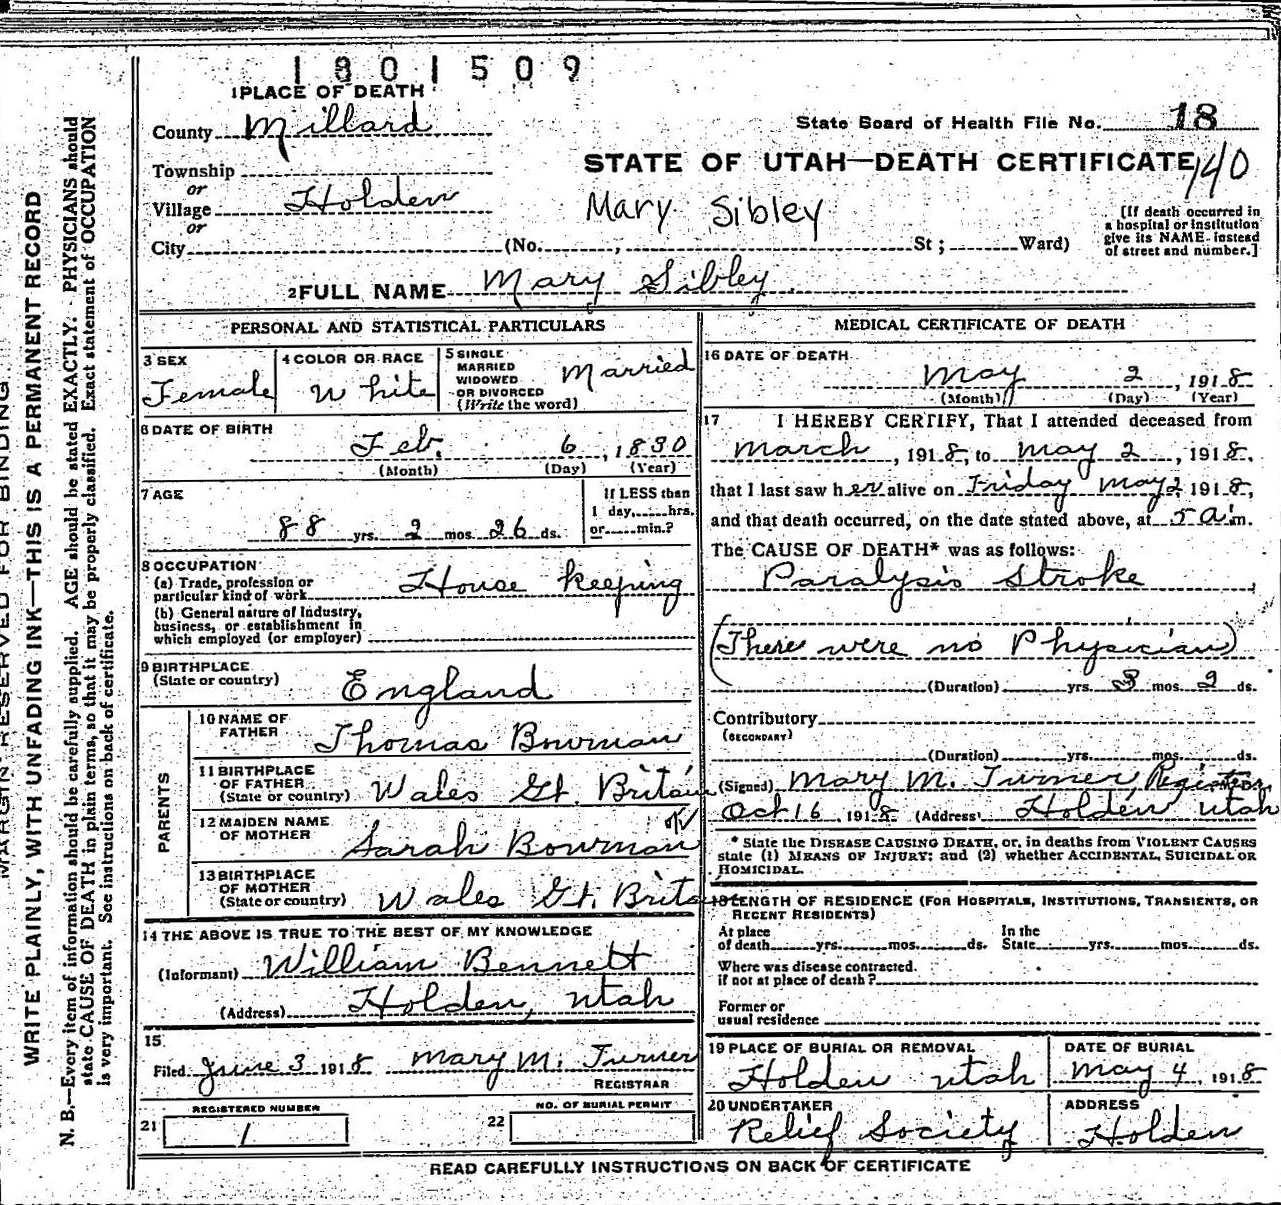 1801509
1 PLACE OF DEATH
County Millard
Township
or
Village Holden
or
City (No. , St; Ward)
State Board of Health File No. 18
STATE OF UTAH—DEATH CERTIFICATE 140
Mary Sibley
[If death occurred in
a hospital or institution
give its NAME instead
of street and number.]
2 FULL NAME Mary Sibley
PERSONAL AND STATISTICAL PARTICULARS
3 SEX
Female
4 COLOR OR RACE
White
5 SINGLE
MARRIED
WIDOWED
OR DIVORCED
(Write the word)
Married
6 DATE OF BIRTH
Feb. 6, 1830
(Month) (Day) (Year)
7 AGE
88 yrs. 2 mos. 26 ds.
If LESS than
1 day, hrs.
or min.?
8 OCCUPATION
(a) Trade, profession or
particular kind of work House keeping
(b) General nature of Industry,
business, or establishment in
which employed (or employer)
9 BIRTHPLACE
(State or country) England
PARENTS
10 NAME OF
FATHER Thomas Bowman
11 BIRTHPLACE
OF FATHER
(State or country) Wales Gt. Britain
12 MAIDEN NAME
OF MOTHER Sarah Bowman
13 BIRTHPLACE
OF MOTHER
(State or country) Wales Gt. Britain
14 THE ABOVE IS TRUE TO THE BEST OF MY KNOWLEDGE
(Informant) William Bennett
(Address) Holden, Utah
15
Filed June 3 1918 Mary M. Turner
REGISTRAR
REGISTERED NUMBER
21 1
NO. OF BURIAL PERMIT
22
MEDICAL CERTIFICATE OF DEATH
16 DATE OF DEATH
May 2, 1918
(Month) (Day) (Year)
17 I HEREBY CERTIFY, That I attended deceased from
March, 1918, to May 2, 1918,
that I last saw her alive on Friday May 2 1918,
and that death occurred, on the date stated above, at 5 a.m.
The CAUSE OF DEATH* was as follows:
Paralysis Stroke
(There were no Physician)
(Duration) yrs. 3 mos. 2 ds.
Contributory
(SECONDARY)
(Duration) yrs. mos. ds.
(Signed) Mary M. Turner Registrar
Oct 16, 1918 (Address) Holden Utah
* State the DISEASE CAUSING DEATH, or, in deaths from VIOLENT CAUSES
state (1) MEANS OF INJURY; and (2) whether ACCIDENTAL, SUICIDAL OR
HOMICIDAL.
18 LENGTH OF RESIDENCE (FOR HOSPITALS, INSTITUTIONS, TRANSIENTS, OR
RECENT RESIDENTS)
At place
of death yrs. mos. ds.
In the
State yrs. mos. ds.
Where was disease contracted.
if not at place of death?
Former or
usual residence
19 PLACE OF BURIAL OR REMOVAL
Holden Utah
DATE OF BURIAL
May 4, 1918
20 UNDERTAKER
Relief Society
ADDRESS
Holden
READ CAREFULLY INSTRUCTIONS ON BACK OF CERTIFICATE
MARGIN RESERVED FOR BINDING
WRITE PLAINLY, WITH UNFADING INK—THIS IS A PERMANENT RECORD
N. B.—Every item of information should be carefully supplied. AGE should be stated EXACTLY. PHYSICIANS should
state CAUSE OF DEATH in plain terms, so that it may be properly classified. Exact statement of OCCUPATION
is very important. See instructions on back of certificate.